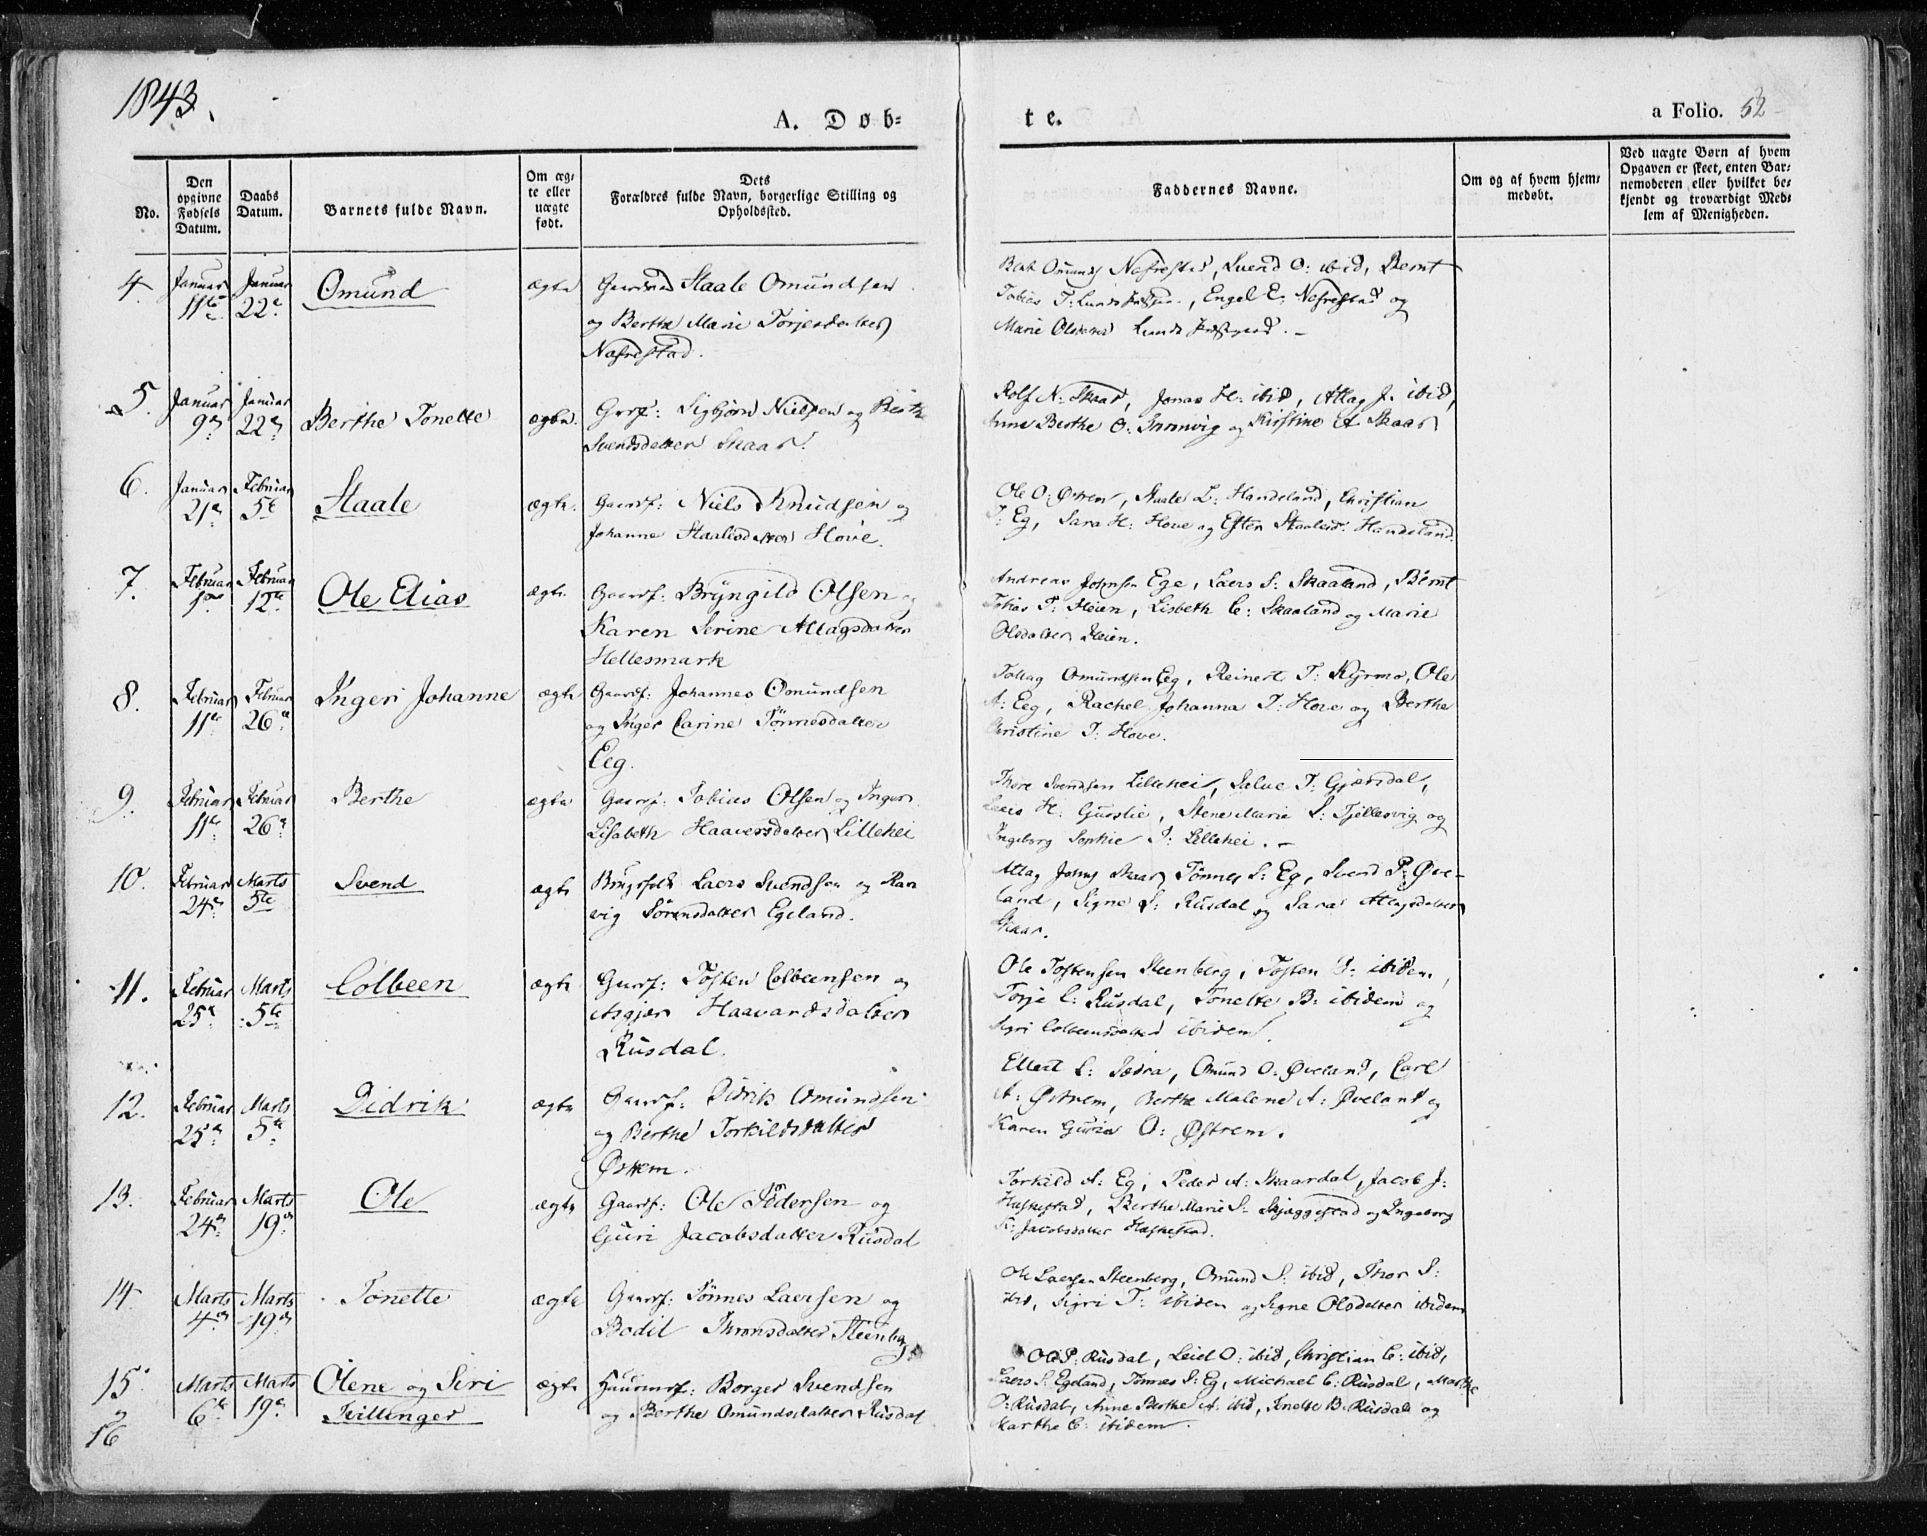 1843.
A. Døb-
te.
a Folio. 52
No.
Den
opgivne
Fødsels
Datum.
Daabs
Datum.
Barnets fulde Navn.
Om æg-
te eller
uægte
født.
Dets
Forældres fulde Navn, borgerlige Stilling og
Opholdssted.
Faddernes Navne.
Om og af hvem hjem-
medøbt.
Ved uægte Børn af hvem
Opgaven er skeet, enten Bar-
nemoderen eller hvilket be-
kjendt og troværdigt Med-
lem af Menigheden.
4. Januar Januar Omund ægte Staale Omundsen
11te 22de
og Berthe Marie Torjesdatter
Nafrestad.
Omunds Nafrestad, Svend O: ibid, Bernt
Tobias T: Engel E: Nafrestad og
Marie Lunds
5. Januar Januar Berthe Tonette ægte. Grdf: Sigbjørn Nielsen og Berthe
9de 22de
Svendsdatter Skaar.
Rolf N: Skaar, Jonas H: ibid, Attag J. ibid,
Anne Berthe O: og Kirstine A Skaar
6. Januar Februar Staale ægte. Gaardf: Niels Knudsen og
21de 5te
Johanne Staalesdatter Hove.
Ole O: Østrem, Staale L: Handeland, Christian
T: Eg, Sara H: Hove og Ester Staalesd. Handeland.
7. Februar Februar Ole Elias ægte. Gaardf: Bryngild Olsen og
12te
Karen Serine Attagsdatter
Hellesmark
Andreas Johnsen Ege, Laers S: Skaaland, Bernt
Tobias P: Heien, Lisbeth C: Skaaland og Marie
Olsdatter Heien.
8. Februar Februar Ingeri Johanne ægte Gaardf: Johannes Omundsen
11te 26de
og Inger Carine Tønnesdatter
Eeg.
Tollag Omundsen Eeg, Reinert T: Kyrmo, Ole
A: Eeg, Rachel Johanna T: Hove og Berthe
Christine T: Hove.
9. Februar Februar Berthe ægte Gaardf: Tobias Olsen og Inger
11te 26de
Lisabeth Haaversdatter Lillehei
Thore Svendsen Lillehei, Salve T: Gjersdal,
Laers H: Gurslie, Stene Marie S: Tjellesvig og
Ingeborg Sophie J: Lillehei.
10. Februar Marts Svend ægte Brugsfolk Laers Svendsen og Ran
24de 5te
vig Sørensdatter Egeland.
Attag Johns Skaar, Tønnes S: Eg, Svend P: Øve-
land, Signe S: Rusdal og Sara Attagsdatter
Skaar.
11. Februar Marts Colbeen ægte Gaardf: Tosten Colbeensen og
25de 5te
Asgjær Haavardsdatter
Rusdal.
Ole Tostensen Steenberg, Tosten O: ibidem,
Torje C: Rusdal, Tonette B: ibidem og
Sigri Colbeensdatter ibidem.
12. Februar Marts Didrik ægte Gaardf: Didrik Omundsen
25de 5te
og Berthe Torkildsdatter
Østrem.
Ellert L: Omund O: Øveland, Carl
A: Østrem, Berthe Malene A: Øveland og
Karen Guria O: Østrem.
13. Februar Marts Ole ægte Gaardf: Ole Pedersen og
24de 19de
Guri Jacobsdatter Rusdal
Torkild A: Eg, Peder A: Skaardal, Jacob J:
Berthe Marie S: Skjæggestad og Ingeborg
Jacobsdatter
14 Marts Marts Tonette ægte Gaardf: Tønnes Laersen og
4de 19de
Bodil Thronsdatter Steenberg.
Ole Laersen Steenberg, Omund S: ibid, Thor S:
ibid, Sigri T: ibidem og Signe Olsdatter ibidem
15 Marts Marts Olene og Siri ægte Huusmf: Borger Svendsen
6te 19de
og Tvillinger og Berthe Omundsdatter Rusdal
16
Ole P: Rusdal, Leid O: ibid, Christian C: ibid,
Laers S: Egeland, Tønnes S: Eg, Michael C: Rusdal, Marthe
O: Rusdal, Anne Berthe A: ibid, Tonette B: Rusdal og
Marthe C: ibidem.